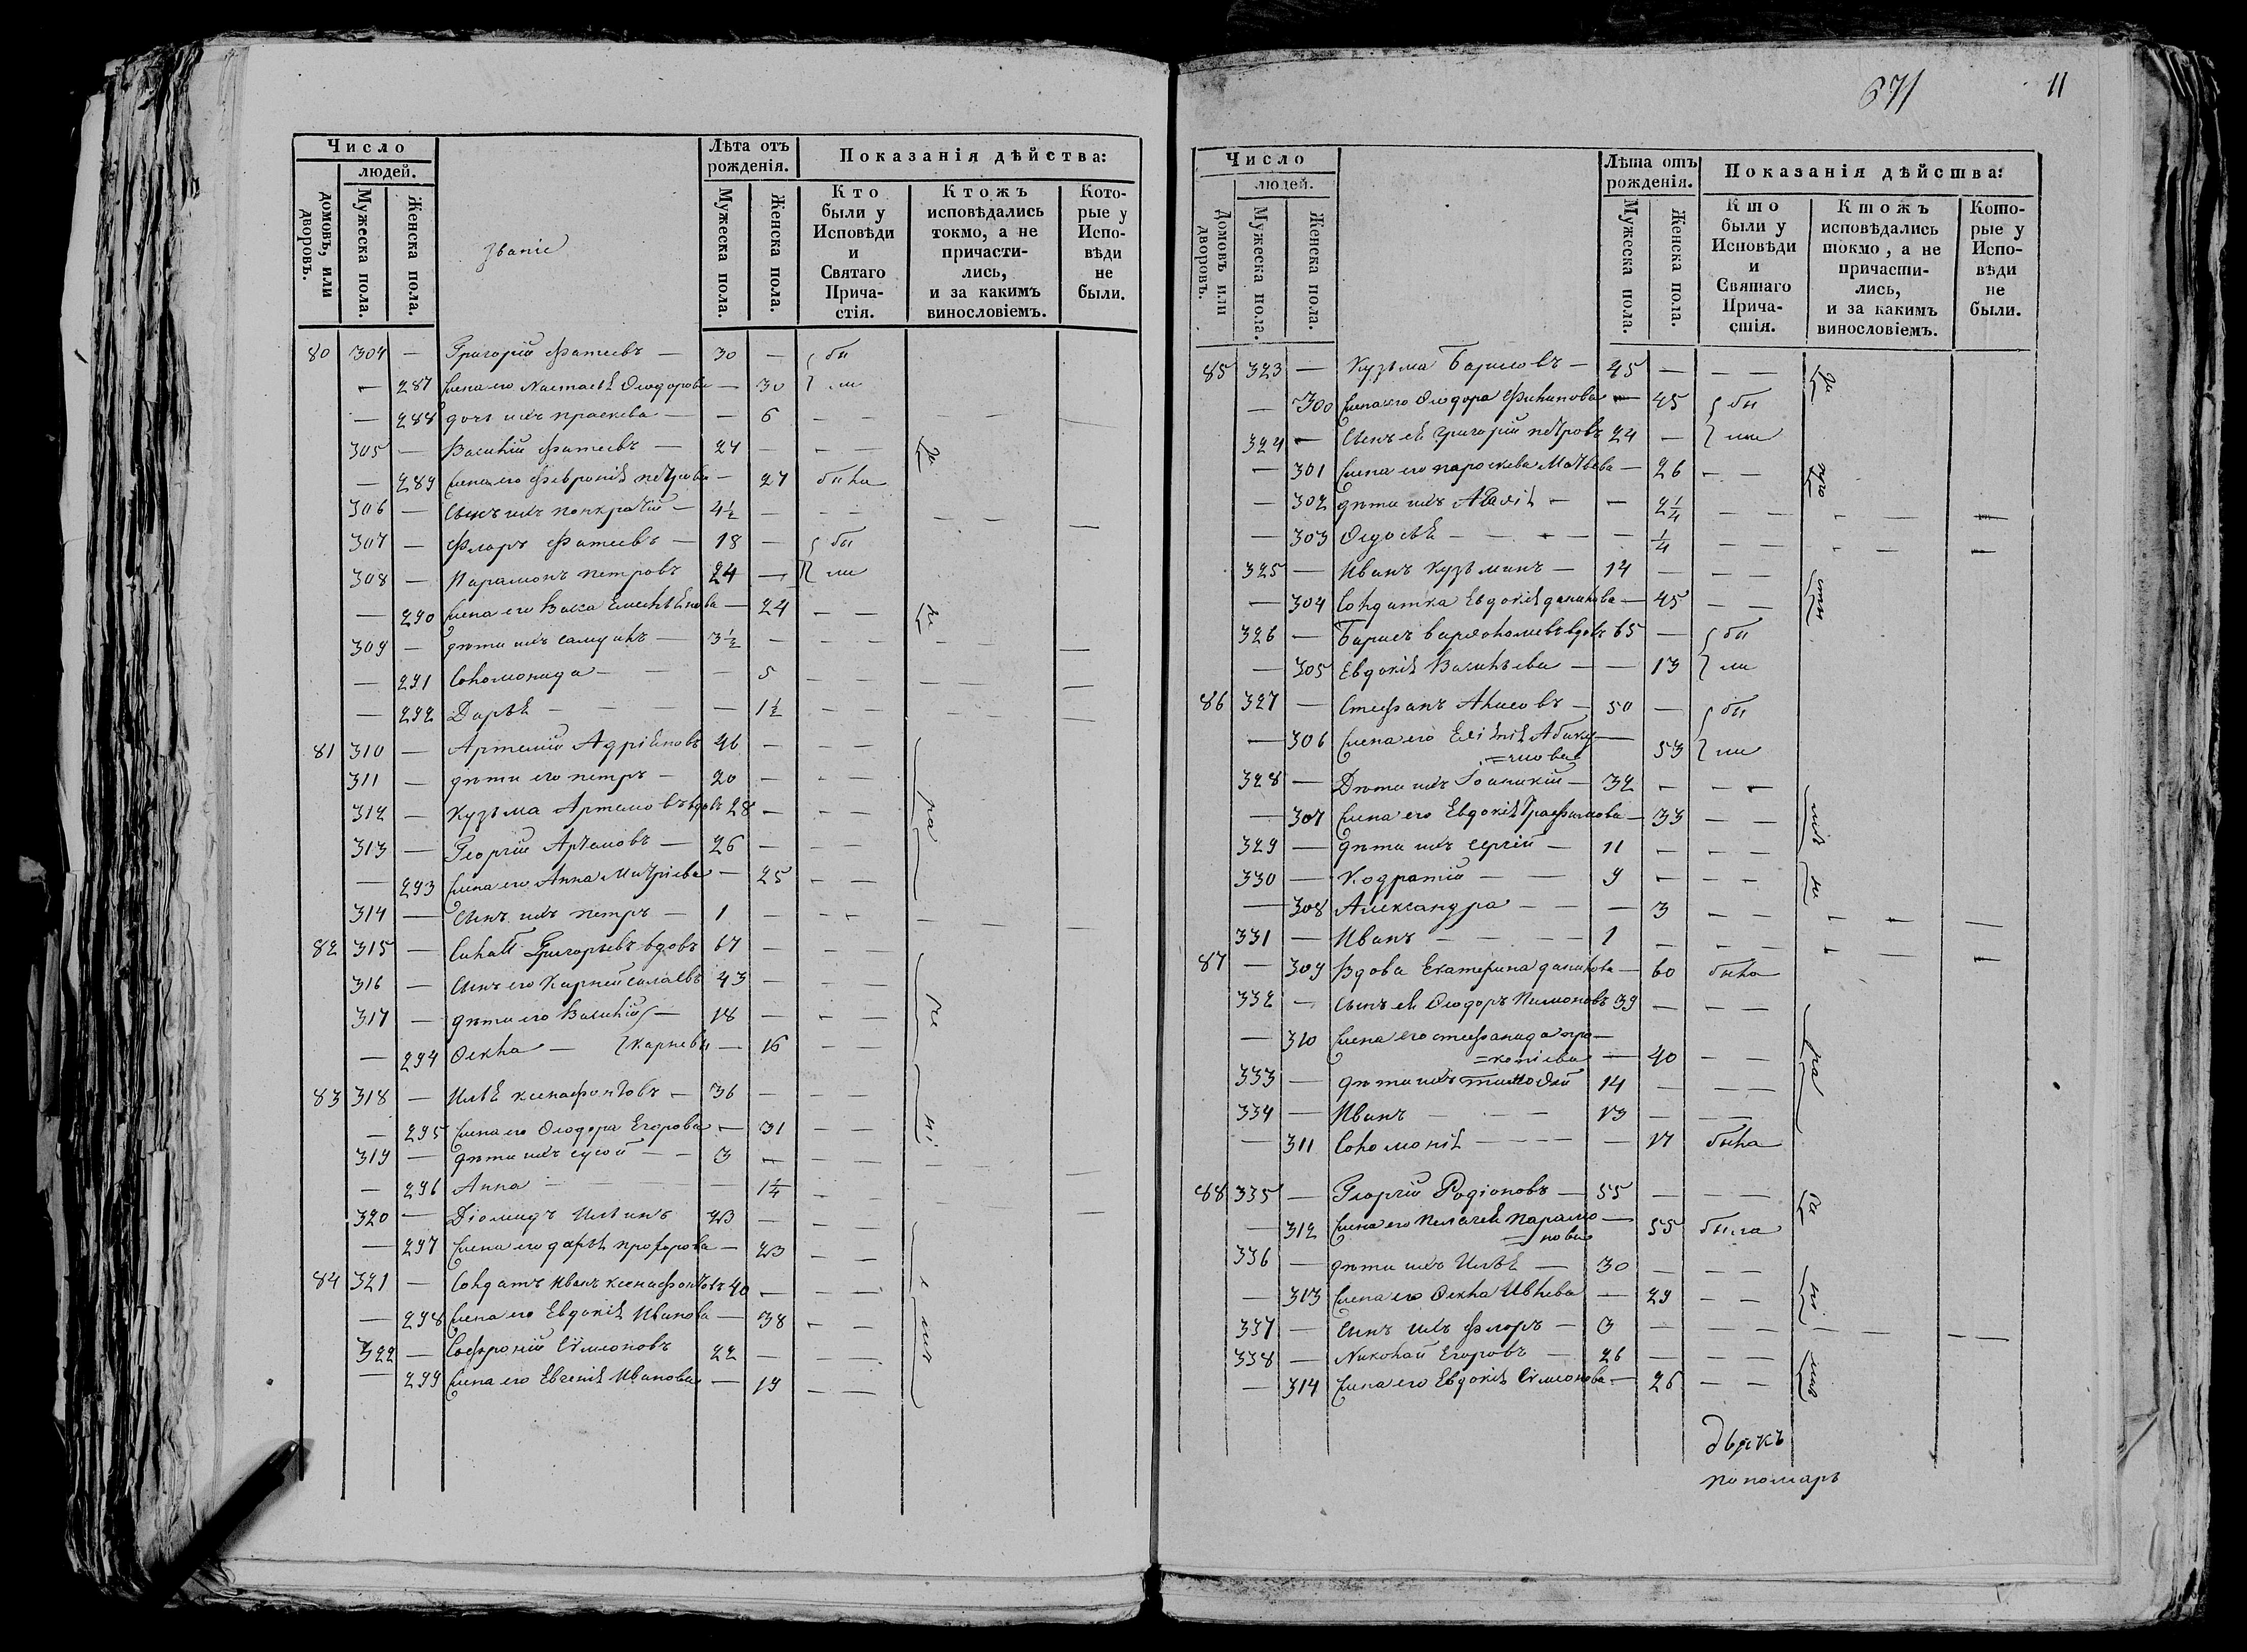 Число
людей.
домовъ, или дворовъ.
Мужеска пола.
Женска пола.
званіе
Лѣта отъ рожденія.
Мужеска пола.
Женска пола.
Показанія дѣйства:
Кто были у Исповѣди и Святаго Прича- стія.
Ктожъ исповѣдались токмо, а не причасти- лись, и за какимъ винословіемъ.
Кото- рые у Испо- вѣди не были.
80 304 — Григорій Фатеевъ — 30 — бы
— 287 жена его Настасья Ѳеодорова — 30 ли
— 288 дочь ихъ праскева — — 6 — —
305 — Василій Фатеевъ — 27 — — —
— 289 жена его Февронія петрова — 27 была
306 — сынъ ихъ понкратій — 4½ — — —
307 — Флоръ Фатеевъ — 18 — бы
308 — Парамонъ петровъ 24 — ли
— 290 жена его Васса — 24 — —
309 — дѣти ихъ самуилъ — 3½ — — —
— 291 Соломонида — — 5 — —
— 292 Дарья — — — 1½ — —
81 310 — Артемій Адріяновъ 46 — — —
311 — дѣти его петръ — 20 — — —
312 — Кузьма Артемовъ вдовъ 28 — — —
313 — Георгій Артемовъ — 26 — — —
— 293 жена его Анна Митріева — 25 — —
314 — сынъ ихъ петръ — 1 — — —
82 315 — Силай Григорьевъ вдовъ 67 — — —
316 — сынъ его Карней силаевъ 43 — — —
317 — дѣти его Василій — 18 — — —
— 294 Ѳекла — карневы — 16 — —
83 318 — Илья ксенофонтовъ — 36 — — —
— 295 жена его Ѳеодора Егорова — 31 — —
319 — дѣти ихъ сысой — 3 — — —
— 296 Анна — — — 1¼ — —
320 — Діомидъ Ильинъ 23 — — —
— 297 жена его дарья прохорова — 23 — —
84 321 — Солдатъ Иванъ ксенафонтовъ 40 — — —
— 298 жена его Евдокія Иванова — 38 — —
322 — Софроній Симионовъ 22 — — —
— 299 жена его Евгенія Иванова — 19 — —
671
11
Число
людей.
Домовъ или дворовъ.
Мужеска пола.
Женска пола.
Лѣта отъ рожденія.
Мужеска пола.
Женска пола.
Показанія дѣйства:
Кто были у Исповѣди и Святаго Прича- стія.
Ктожъ исповѣдались токмо, а не причасти- лись, и за какимъ винословіемъ.
Кото- рые у Испо- вѣди не были.
85 323 — Кузьма Барисовъ — 45 — — —
— 300 жена его Ѳеодора Филипова — 45 бы
324 — сынъ ея григорій петровъ 24 — ли
— 301 жена его пароскева Матвѣева — 26 — —
302 дѣти ихъ Агаѳія — — 2¼ — —
— 303 Ѳедосья — — — — ¼ — —
325 — Иванъ Кузьминъ — 14 — — —
— 304 Солдатка Евдокія данилова — 45 — —
326 — Барисъ варѳоломевъ вдовъ 65 — бы
— 305 Евдокія Васильева — — 13 ли
86 327 — Стефанъ — 50 — бы
— 306 жена его Абаку= =мова 53 ли
328 — Дѣти ихъ Іоаникій — 32 — — —
— 307 жена его Евдокія Трафимова — 33 — —
329 — дѣти ихъ сергій — 11 — — —
330 — Кодратій — — 9 — — —
— 308 Александра — — — 3 — —
331 — Иванъ — — — 1 — — —
87 — 309 Вдова Екатерина данилова — 60 была
332 — сынъ ея Ѳеодоръ Пимоновъ 39 — — —
— 310 жена его стефанида про= =копіева — 40 — —
333 — дѣти ихъ тимоѳей 14 — — —
334 — Иванъ — — — 13 — — —
— 311 Соломонія — — — — 17 была
88 335 — Георгій Родіоновъ — 55 — — —
— 312 жена его Пелагея Парамо= =нова 55 была
336 — дѣти ихъ Илья — 30 — — —
— 313 жена его Ѳекла — 29 — —
337 — сынъ ихъ флоръ — 3 — — —
338 — Николай Егоровъ — 26 — — —
— 314 жена его Евдокія Симионова — 26 — —
дьякъ
пономарь